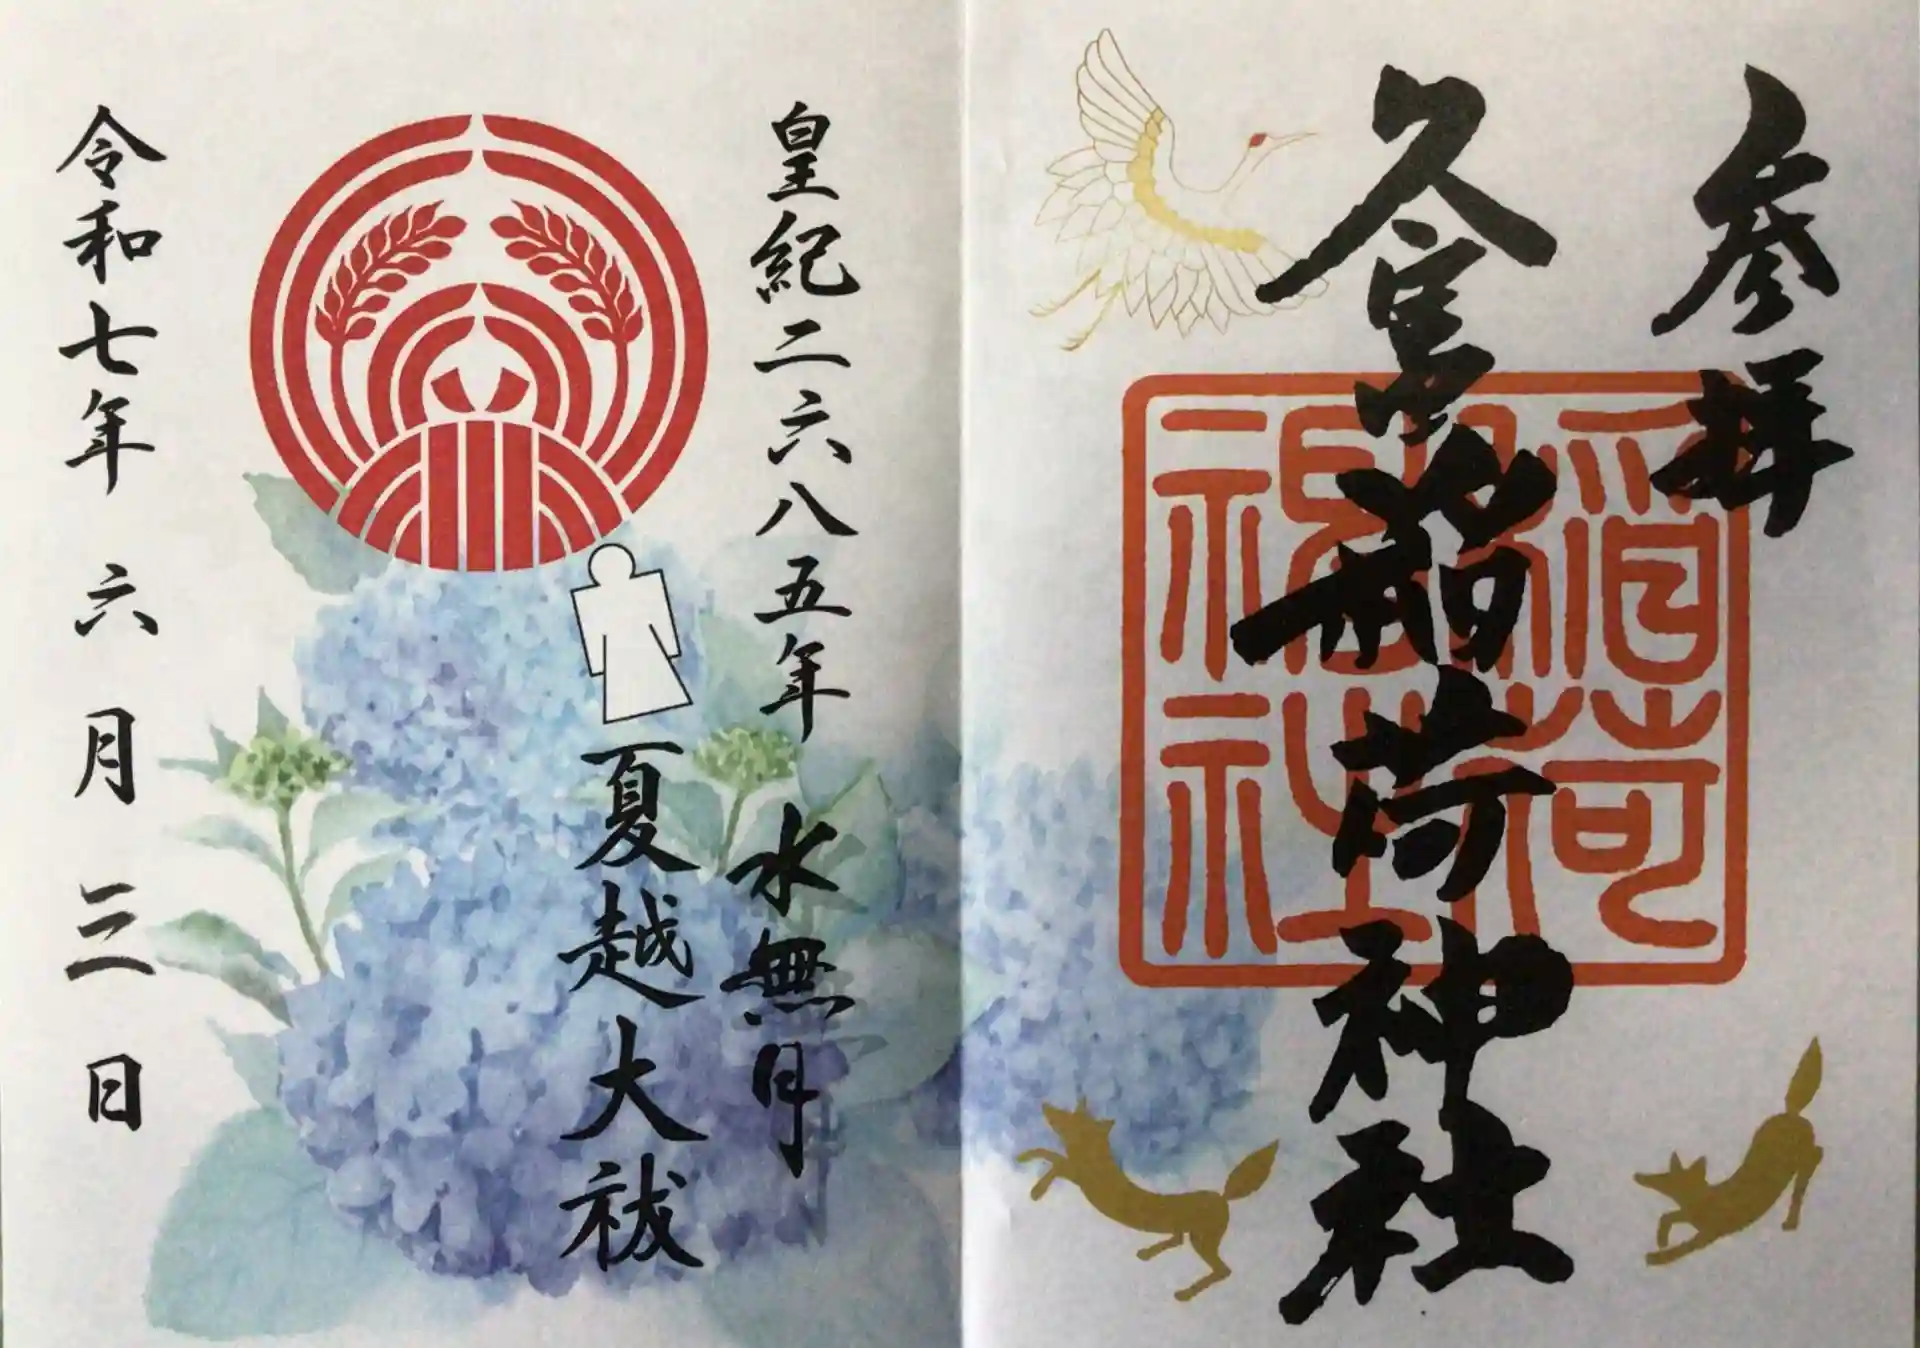 参拝
久富稲荷神社
稲荷
神社
皇紀二六八五年 水無月
夏越大祓
令和七年 六月 三日